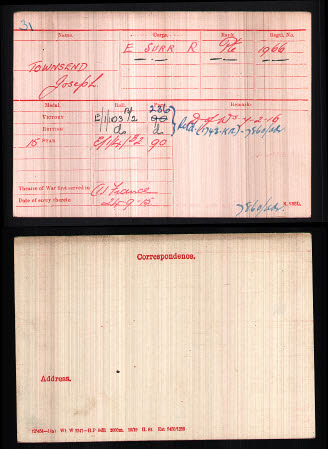 31
Name. Corps. Rank. Regtl. No.
E SURR R Pte 1966
TOWNSEND
Joseph
Medal. Roll. Page. Remarks.
VICTORY E/1/103 B/2 286 90 D of Ws 4-2-16
BRITISH do do
15 STAR E/1/4/B2 90
Theatre of War first served in (1) France
Date of entry therein 24-9-15
7860/adr.
Correspondence.
Address.